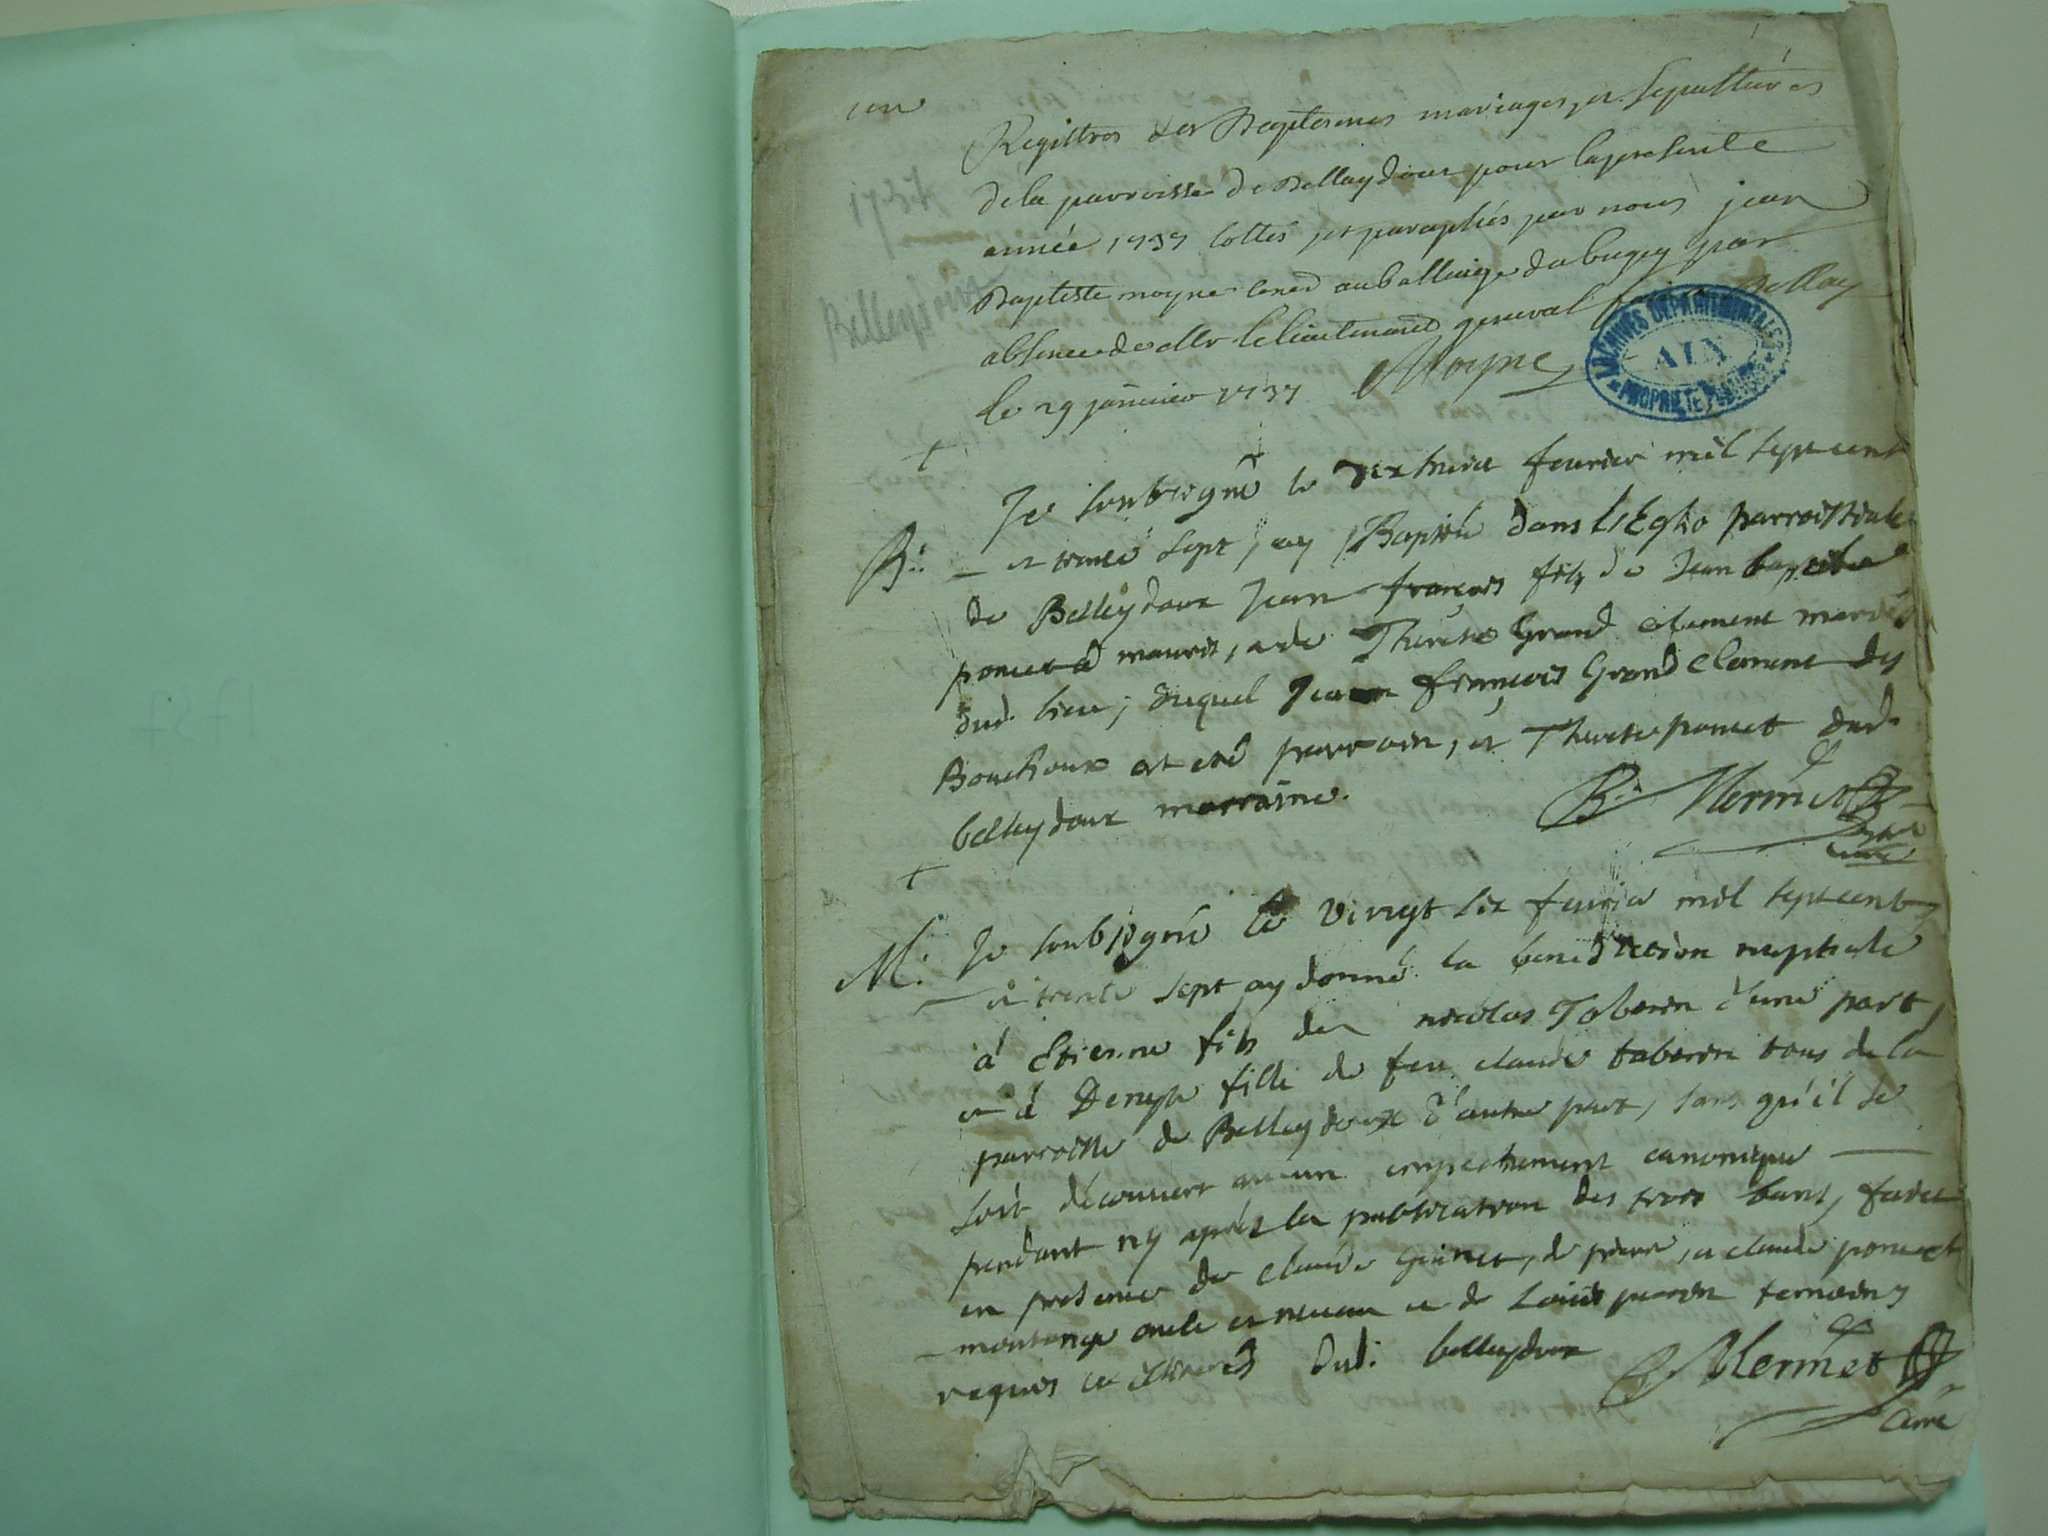 Registres des Baptesmes mariages, et sepultures
de la parroisse de Belleydoux pour la presente
année 1737 cottés et paraphés par nous jean
Baptiste moyne au balliage du bugey par
absence de le lieutenant general Bellay
le 29 janvier 1737 Moyne
ARCHIVES DEPARTEMENTALES
AIN
PROPRIETE PUBLIQUE
Je soubsigné le dix huict feurier mil sept cent
B: et trente sept, ay Baptisé dans l'Eglise parroissiale
de Belleydoux Jean françois fils de Jean baptiste
poncet mauris, et de Therese Grand clement mariés
dud. lieu; duquel Jean françois Grand Clement des
Bouchoux at eté parrain, et Therese poncet dud.
belleydoux marraine. Mermet
curé
M: Je soubsigné le vingt six feurier mil sept cent
et trente sept ay donné la benediction nuptiale
à Etienne fils de nicolas Taberin d'une part,
et à Denyse fille de feu claude taberin tous de la
parroisse de Belleydoux d'autre part, sans qu'il se
soit découvert aucun empechement canonique
pendant ny après la publication des trois bans, faict
en presence de claude Grinet, de pierre, et claude poncet
montange oncle et neveu et de Louis perrin temoins
requis dud. belleydoux Mermet
curé